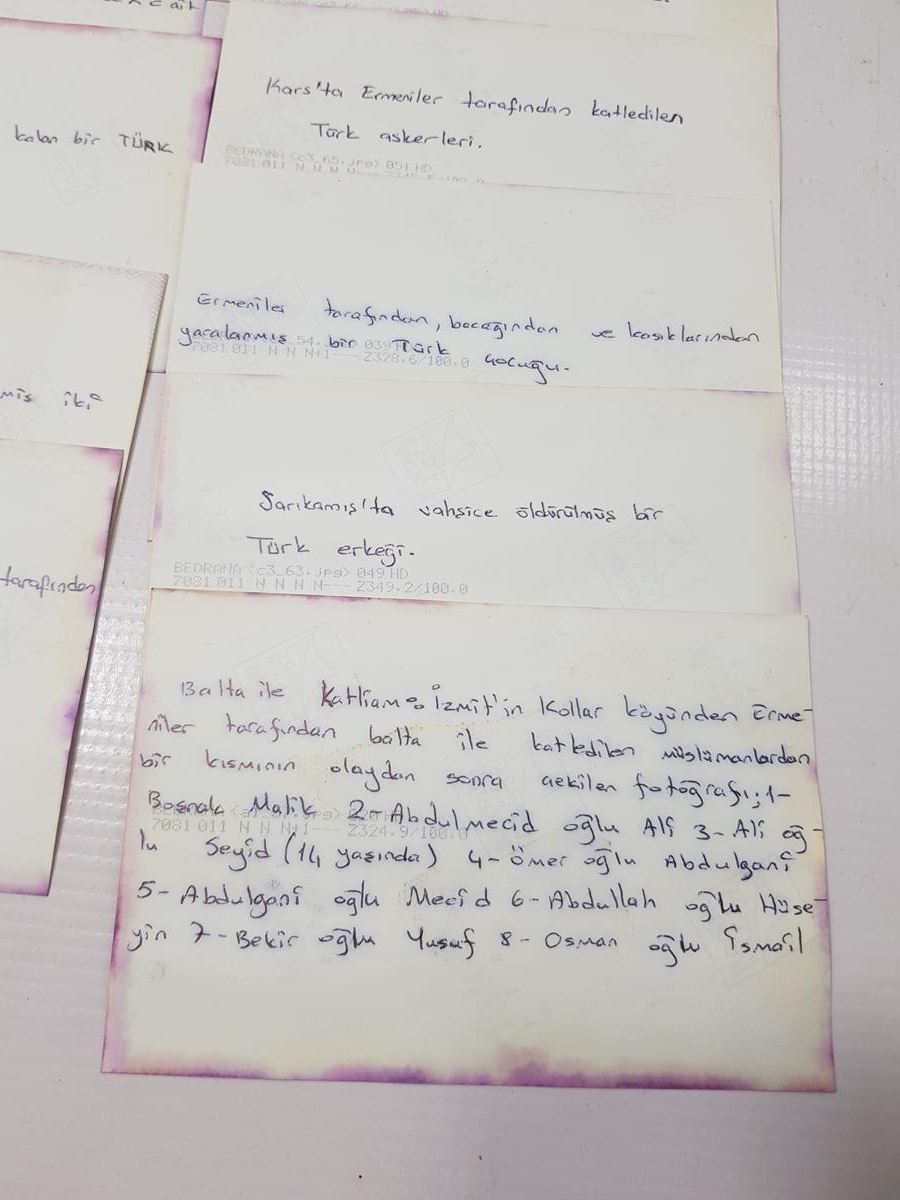 kalan bir TÜRK
miş iki
tarafından
Kars'ta Ermeniler tarafından katledilen
Türk askerleri.
BEDRANA <c3_65.jpg> 051 HD
7081 011 N N N N---
Ermeniler tarafından, bacağından ve kasıklarından
yaralanmış bir Türk çocuğu.
7081 011 N N N+1--- 2328.6/100.0
Sarıkamış'ta vahşice öldürülmüş bir
Türk erkeği.
BEDRANA <c3_63.jpg> 049 HD
7081 011 N N N N--- 2349.2/100.0
Balta ile Katliam: İzmit'in Kollar köyünden Erme-
niler tarafından balta ile katledilen müslümanlardan
bir kısmının olaydan sonra çekilen fotoğrafı; 1-
Boşnak Malik 2-Abdulmecid oğlu Ali 3-Ali oğ-
7081 011 N N N+1--- 2324.9/100.0
lu Seyid (14 yaşında) 4-Ömer oğlu Abdulgani
5-Abdulgani oğlu Mecid 6-Abdullah oğlu Hüse-
yin 7-Bekir oğlu Yusuf 8-Osman oğlu İsmail